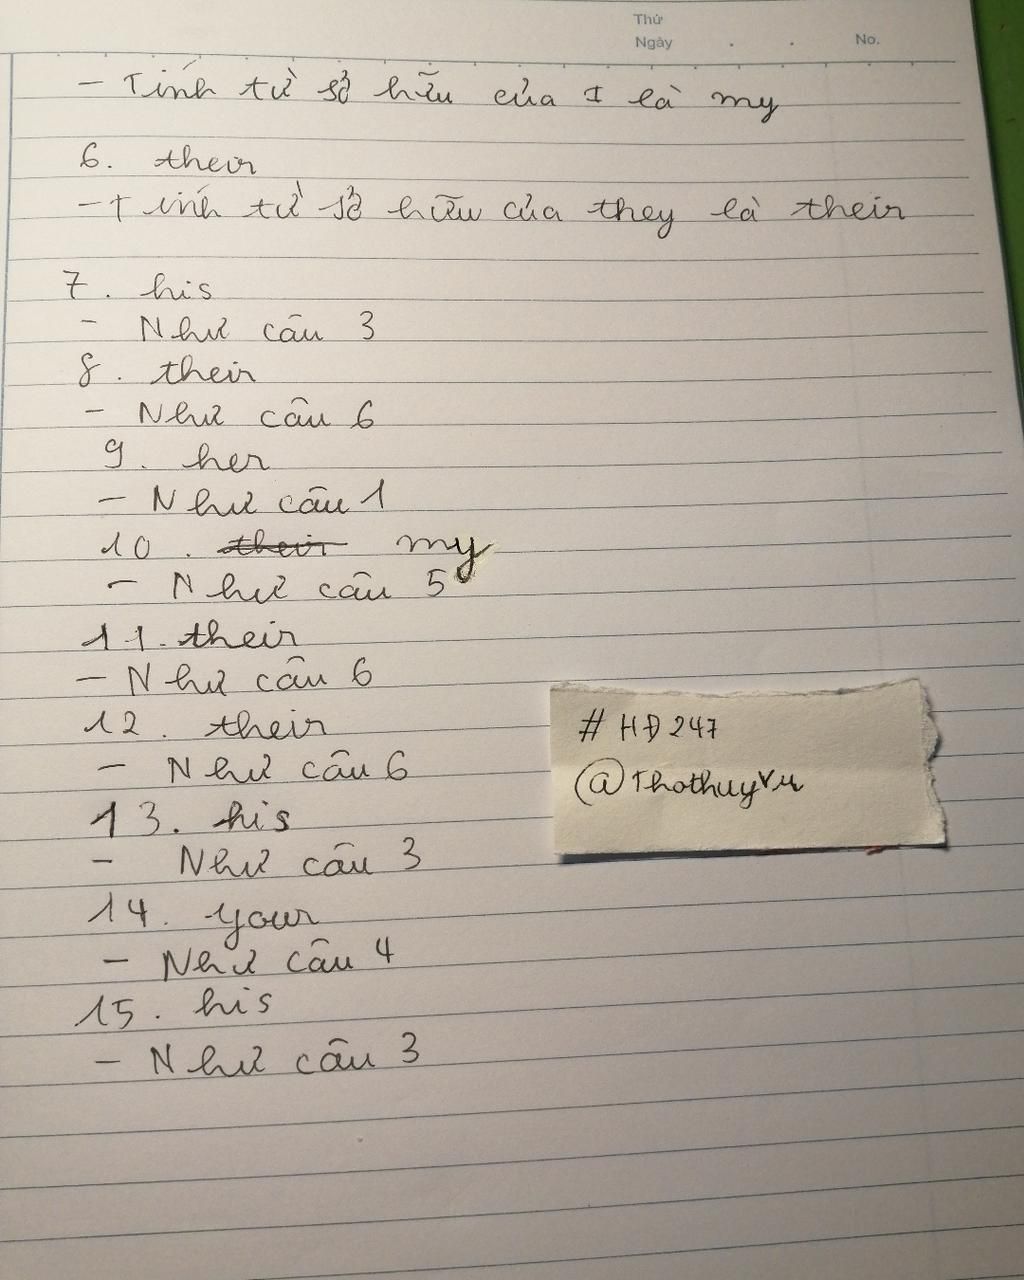 Thứ
Ngày . . No.
- Tính từ sở hữu của I là my
6. their
- Tính từ sở hữu của they là their
7. his
- Như câu 3
8. their
- Như câu 6
9. her
- Như câu 1
10. their my
- Như câu 5
11. their
- Như câu 6
12. their
- Như câu 6
13. his
- Như câu 3
14. your
- Như câu 4
15. his
- Như câu 3
# HĐ247
@Thothuyvu